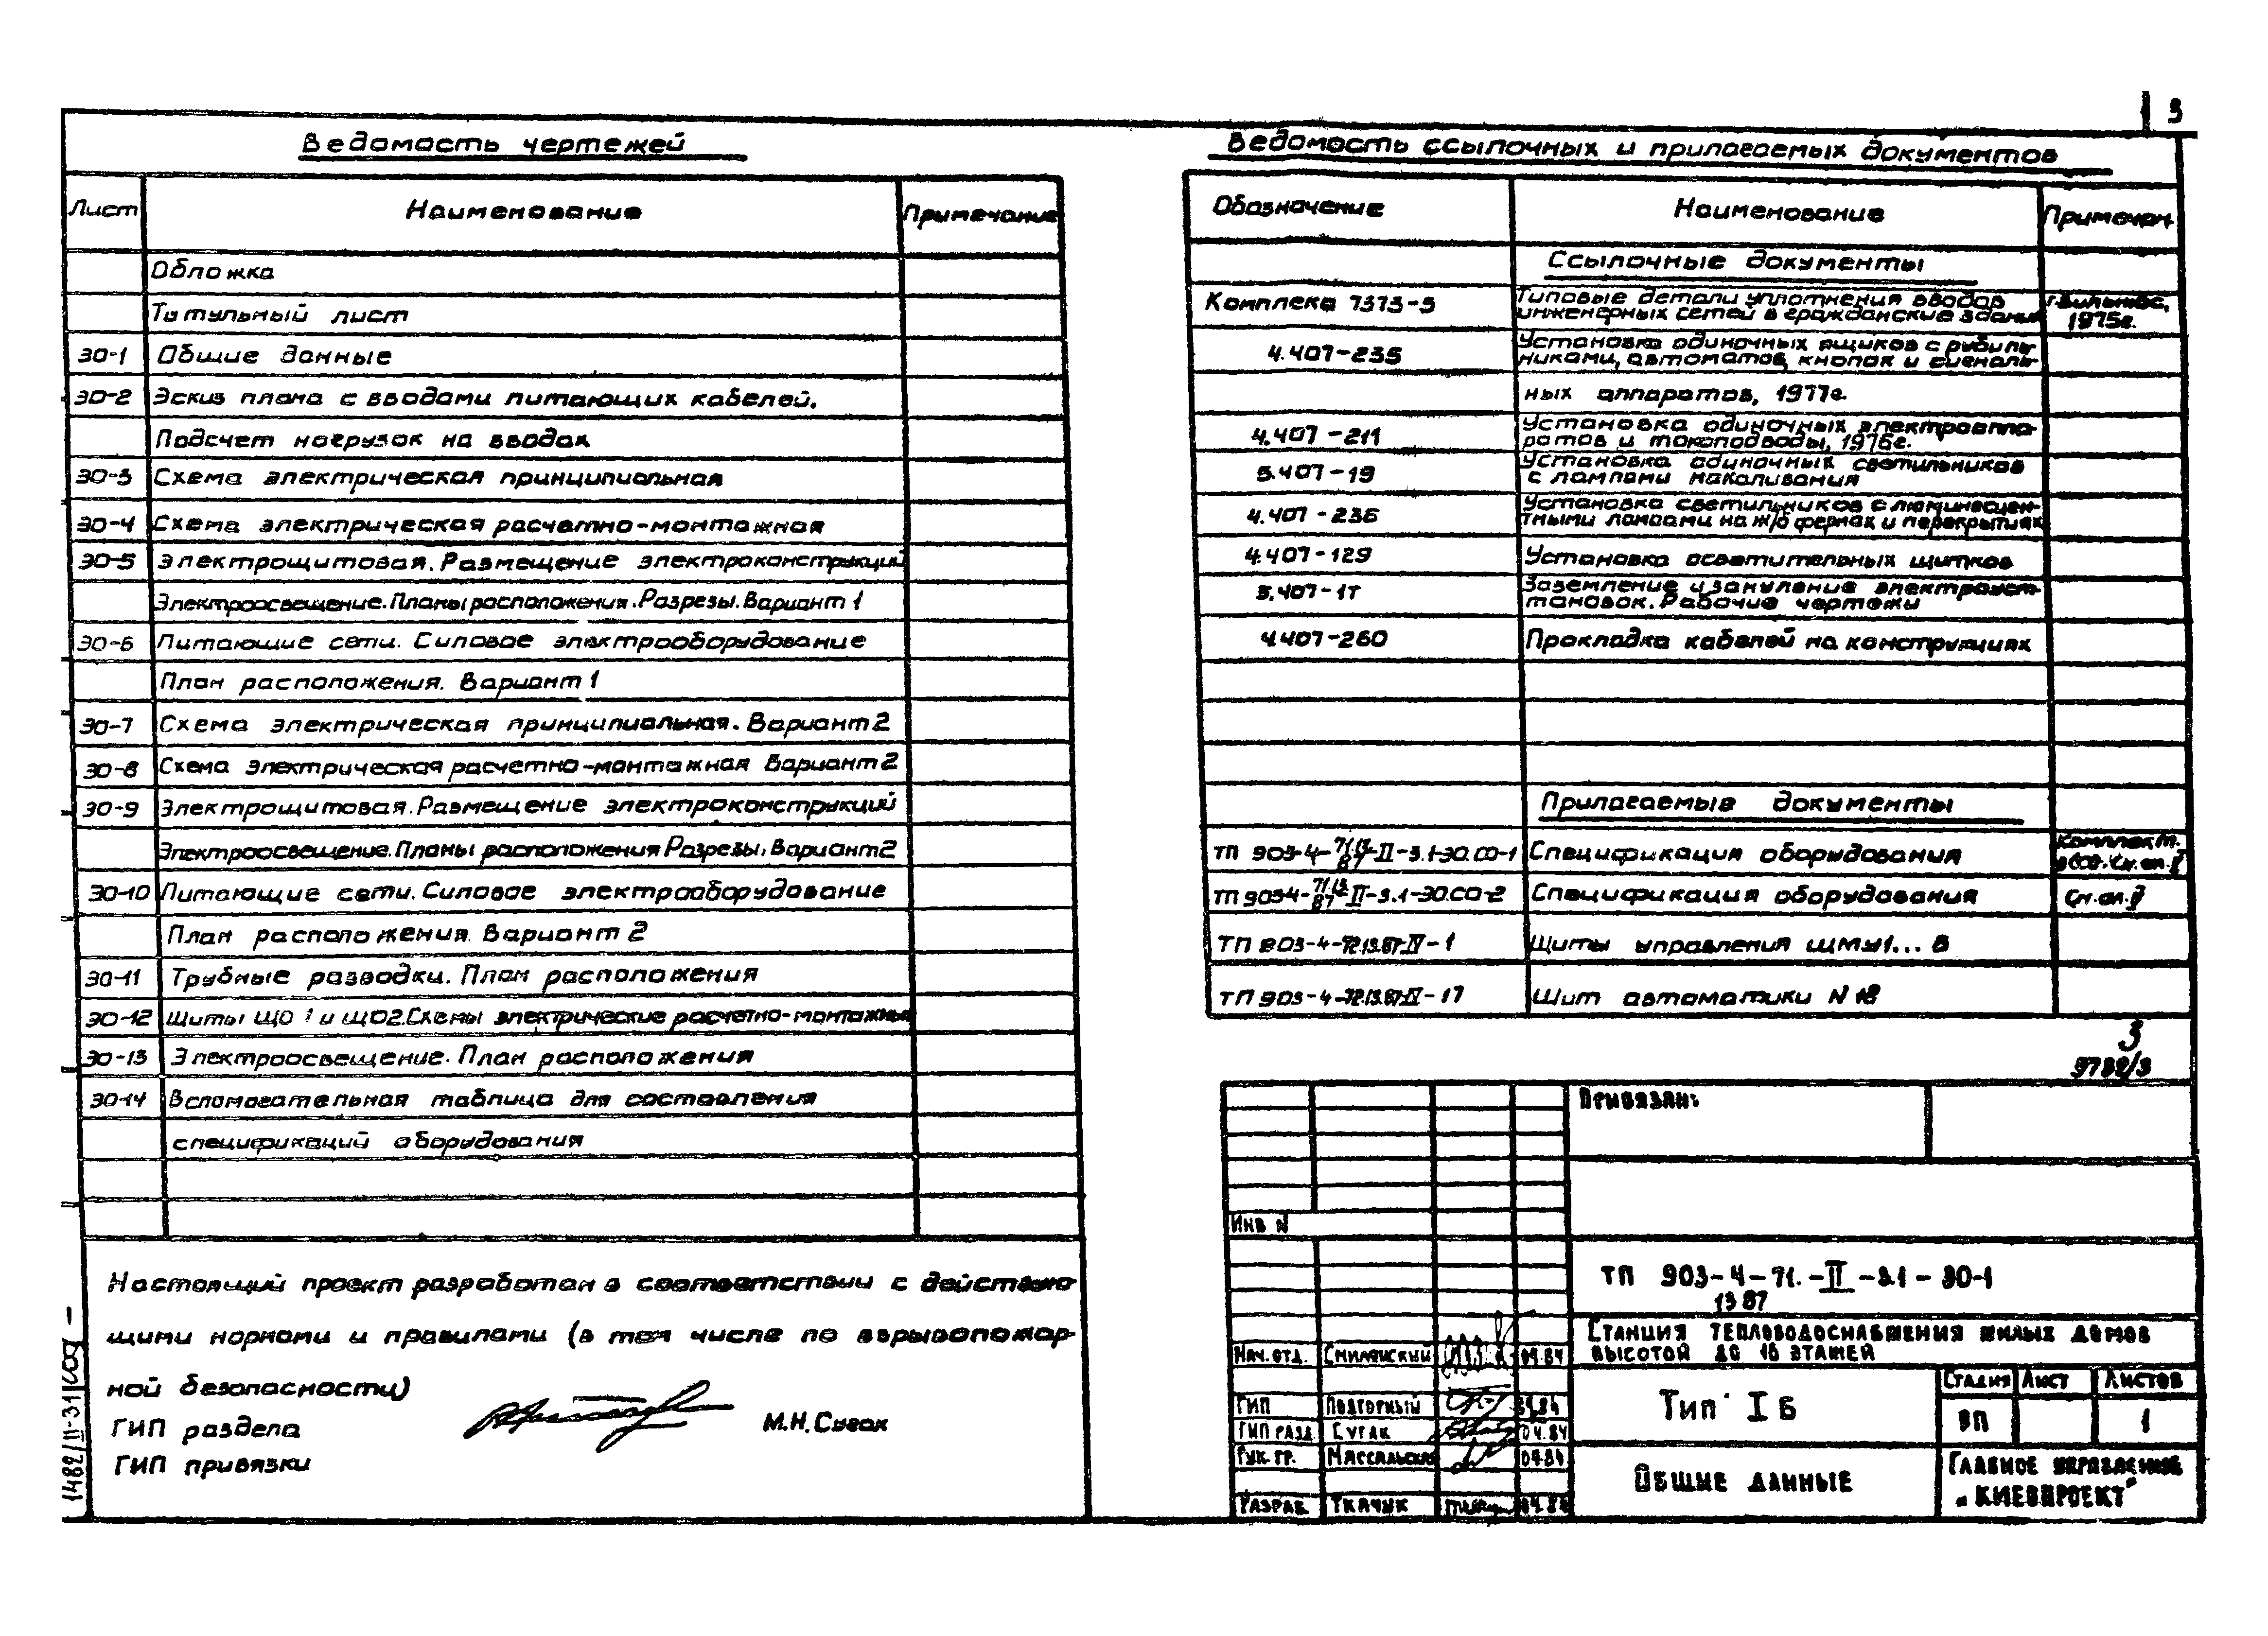 3
Ведомость чертежей
Лист Наименование Примечание
Обложка
Титульный лист
ЭО-1 Общие данные
ЭО-2 Эскиз плана с вводами питающих кабелей.
Подсчет нагрузок на вводах
ЭО-3 Схема электрическая принципиальная
ЭО-4 Схема электрическая расчетно-монтажная
ЭО-5 Электрощитовая. Размещение электроконструкций
Электроосвещение. Планы расположения. Разрезы. Вариант 1
ЭО-6 Питающие сети. Силовое электрооборудование
План расположения. Вариант 1
ЭО-7 Схема электрическая принципиальная. Вариант 2
ЭО-8 Схема электрическая расчетно-монтажная Вариант 2
ЭО-9 Электрощитовая. Размещение электроконструкций
Электроосвещение. Планы расположения Разрезы. Вариант 2
ЭО-10 Питающие сети. Силовое электрооборудование
План расположения. Вариант 2
ЭО-11 Трубные разводки. План расположения
ЭО-12 Щиты ЩО 1 и ЩО2. Схемы электрические расчетно-монтажные
ЭО-13 Электроосвещение. План расположения
ЭО-14 Вспомогательная таблица для составления
спецификаций оборудования
Настоящий проект разработан в соответствии с действую-
щими нормами и правилами (в том числе по взрывопожар-
ной безопасности)
ГИП раздела М.Н. Сугак
ГИП привязки
1482/II-31
Ведомость ссылочных и прилагаемых документов
Обозначение Наименование Примечан.
Ссылочные документы
Комплекс 7373-5 Типовые детали уплотнения вводов г. Вильнюс,
инженерных сетей в гражданские здания 1975г.
4.407-235 Установка одиночных ящиков с рубиль-
никами, автоматов, кнопок и сигналь-
ных аппаратов, 1977г.
4.407-211 Установка одиночных электроаппа-
ратов и токоподводы, 1976г.
5.407-19 Установка одиночных светильников
с лампами накаливания
4.407-236 Установка светильников с люминесцен-
тными лампами на ж/б фермах и перекрытиях
4.407-129 Установка осветительных щитков
5.407-11 Заземление и зануление электроуст-
тановок. Рабочие чертежи
4.407-260 Прокладка кабелей на конструкциях
Прилагаемые документы
ТП 903-4-71.13.87-II-3.1-ЭО.СО-1 Спецификация оборудования
ТП 903-4-71.13.87-II-3.1-ЭО.СО-2 Спецификация оборудования См. ал. V
ТП 903-4-72.13.87-IV-1 Щиты управления ЩМУ1...8
ТП 903-4-72.13.87-IV-17 Щит автоматики N 18
3
9732/3
Привязан:
Инв N
ТП 903-4-71.-II-3.1-ЭО-1
13 87
Станция тепловодоснабжения жилых домов
высотой до 16 этажей
Нач. отд. Смилянский 04.84
ГИП Подгорный 04.84
ГИП разд Сугак 04.84
Рук. гр. Массальская 04.84
Разраб. Ткачук 04.84
Тип IБ
Стадия Лист Листов
РП 1
Общие данные
Главное управление
"Киевпроект"